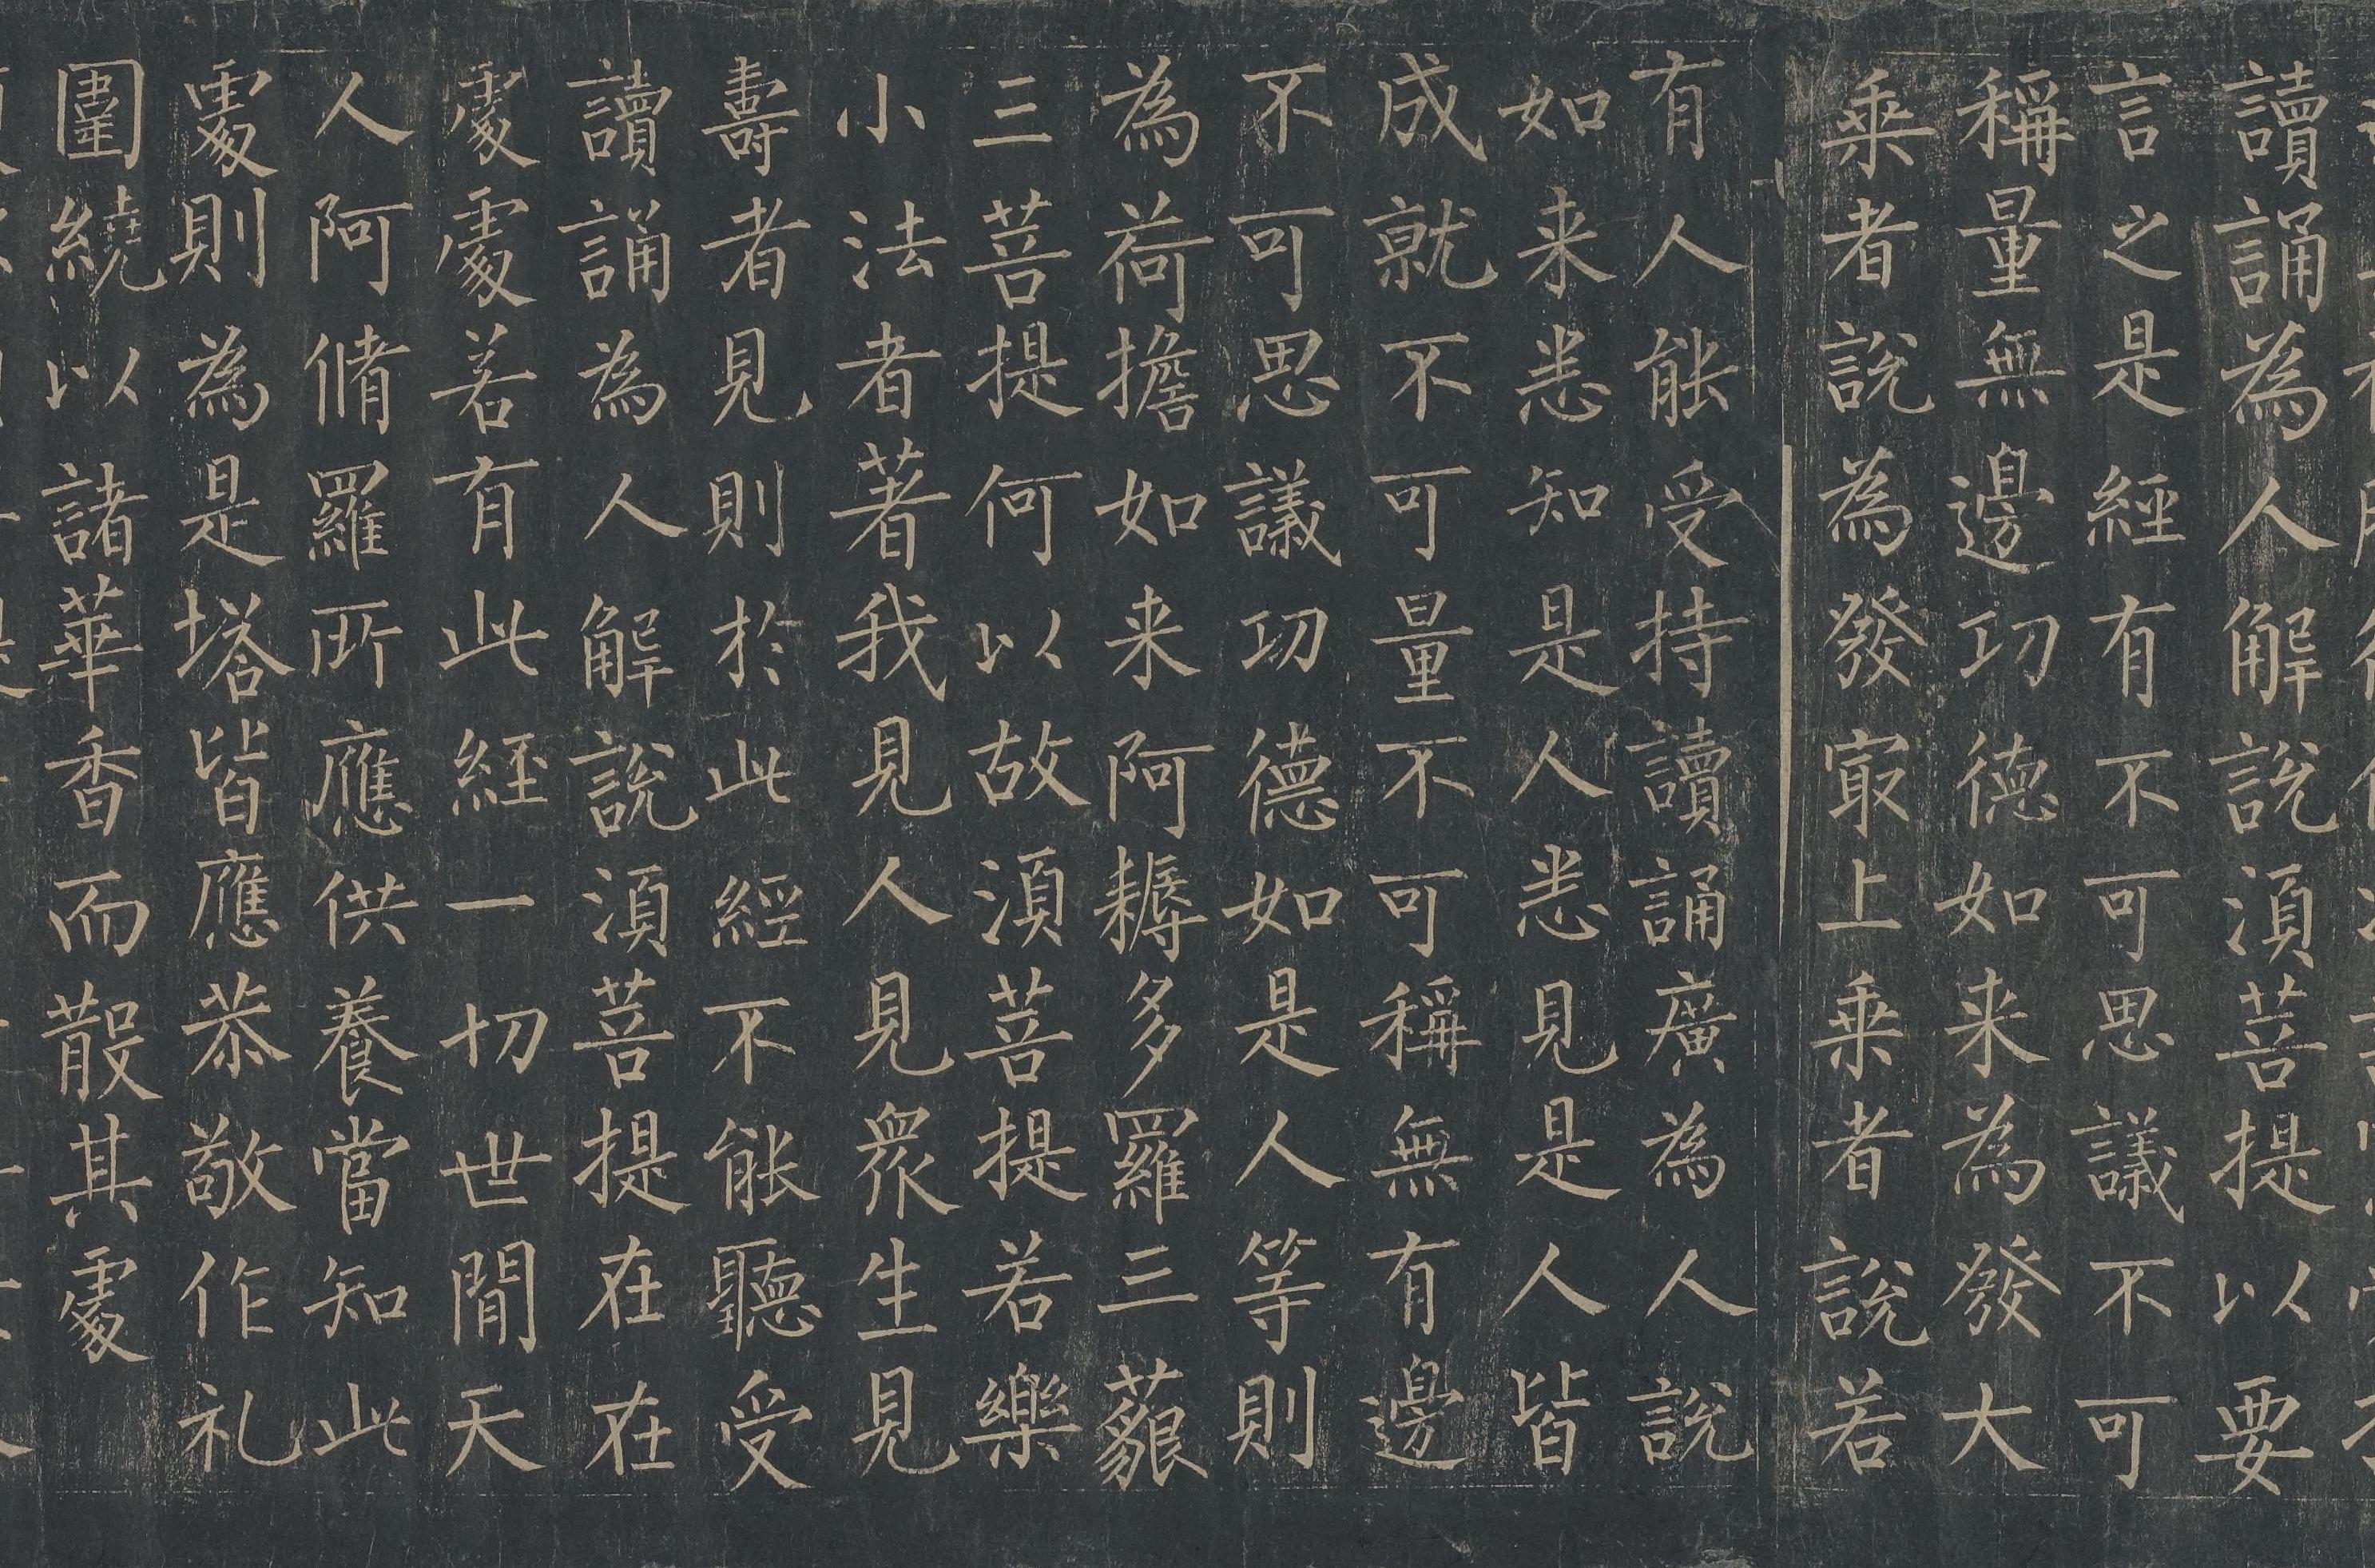 讀誦為人解說湏菩提以要
言之是經有不可思議不可
稱量無邊功德如来為發大
乗者說為發冣上乗者說若
有人能受持讀誦廣為人說
如来悉知是人悉見是人皆
成就不可量不可稱無有邊
不可思議功德如是人等則
為荷擔如来阿耨多羅三藐
三菩提何以故湏菩提若樂
小法者著我見人見眾生見
壽者見則於此經不能聽受
讀誦為人解說湏菩提在在
處處若有此經一切世間天
人阿脩羅所應供養當知此
處則為是塔皆應恭敬作礼
圍繞以諸華香而散其處